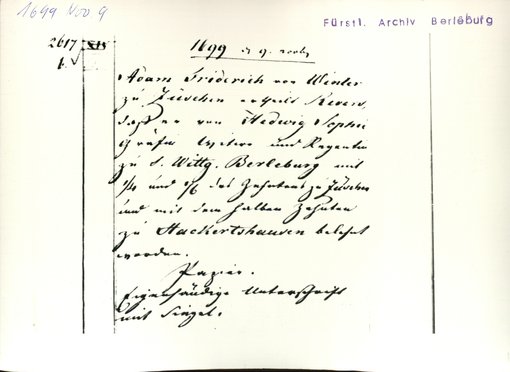 1699 Nov 9
Fürstl. Archiv Berleburg
2617
1699 d. 9. novbr
Adam Friderich von Winter
zu Züschen ertheilt Revers,
daß er von Hedwig Sophi
Gräfin Wittwe und Regentin
zu S. Wittg. Berleburg mit
und des Zehntens zu Züschen
und mit dem halben Zehnten
zu Hackertshausen belehnt
worden.
Papier.
Eigenhändige Unterschrift
mit Siegel.